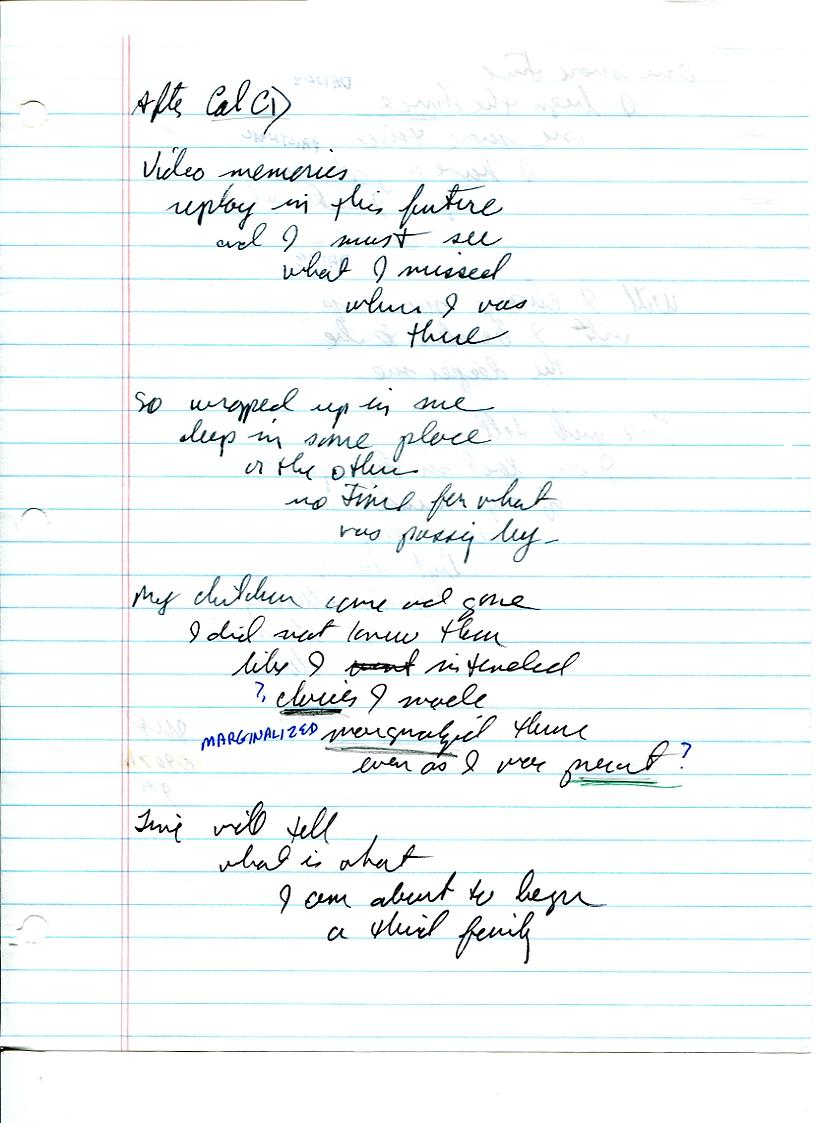 After Cal CD
Video memories
replay in this future
and I must see
what I missed
when I was
there
So wrapped up in me
deep in some place
or the other
no Time for what
was passing by
My children come and gone
I did not know them
like I want intended
? choices I made
MARGINALIZED marginalized them
even as I were present ?
Time will tell
what is what
I am about to begin
a third family